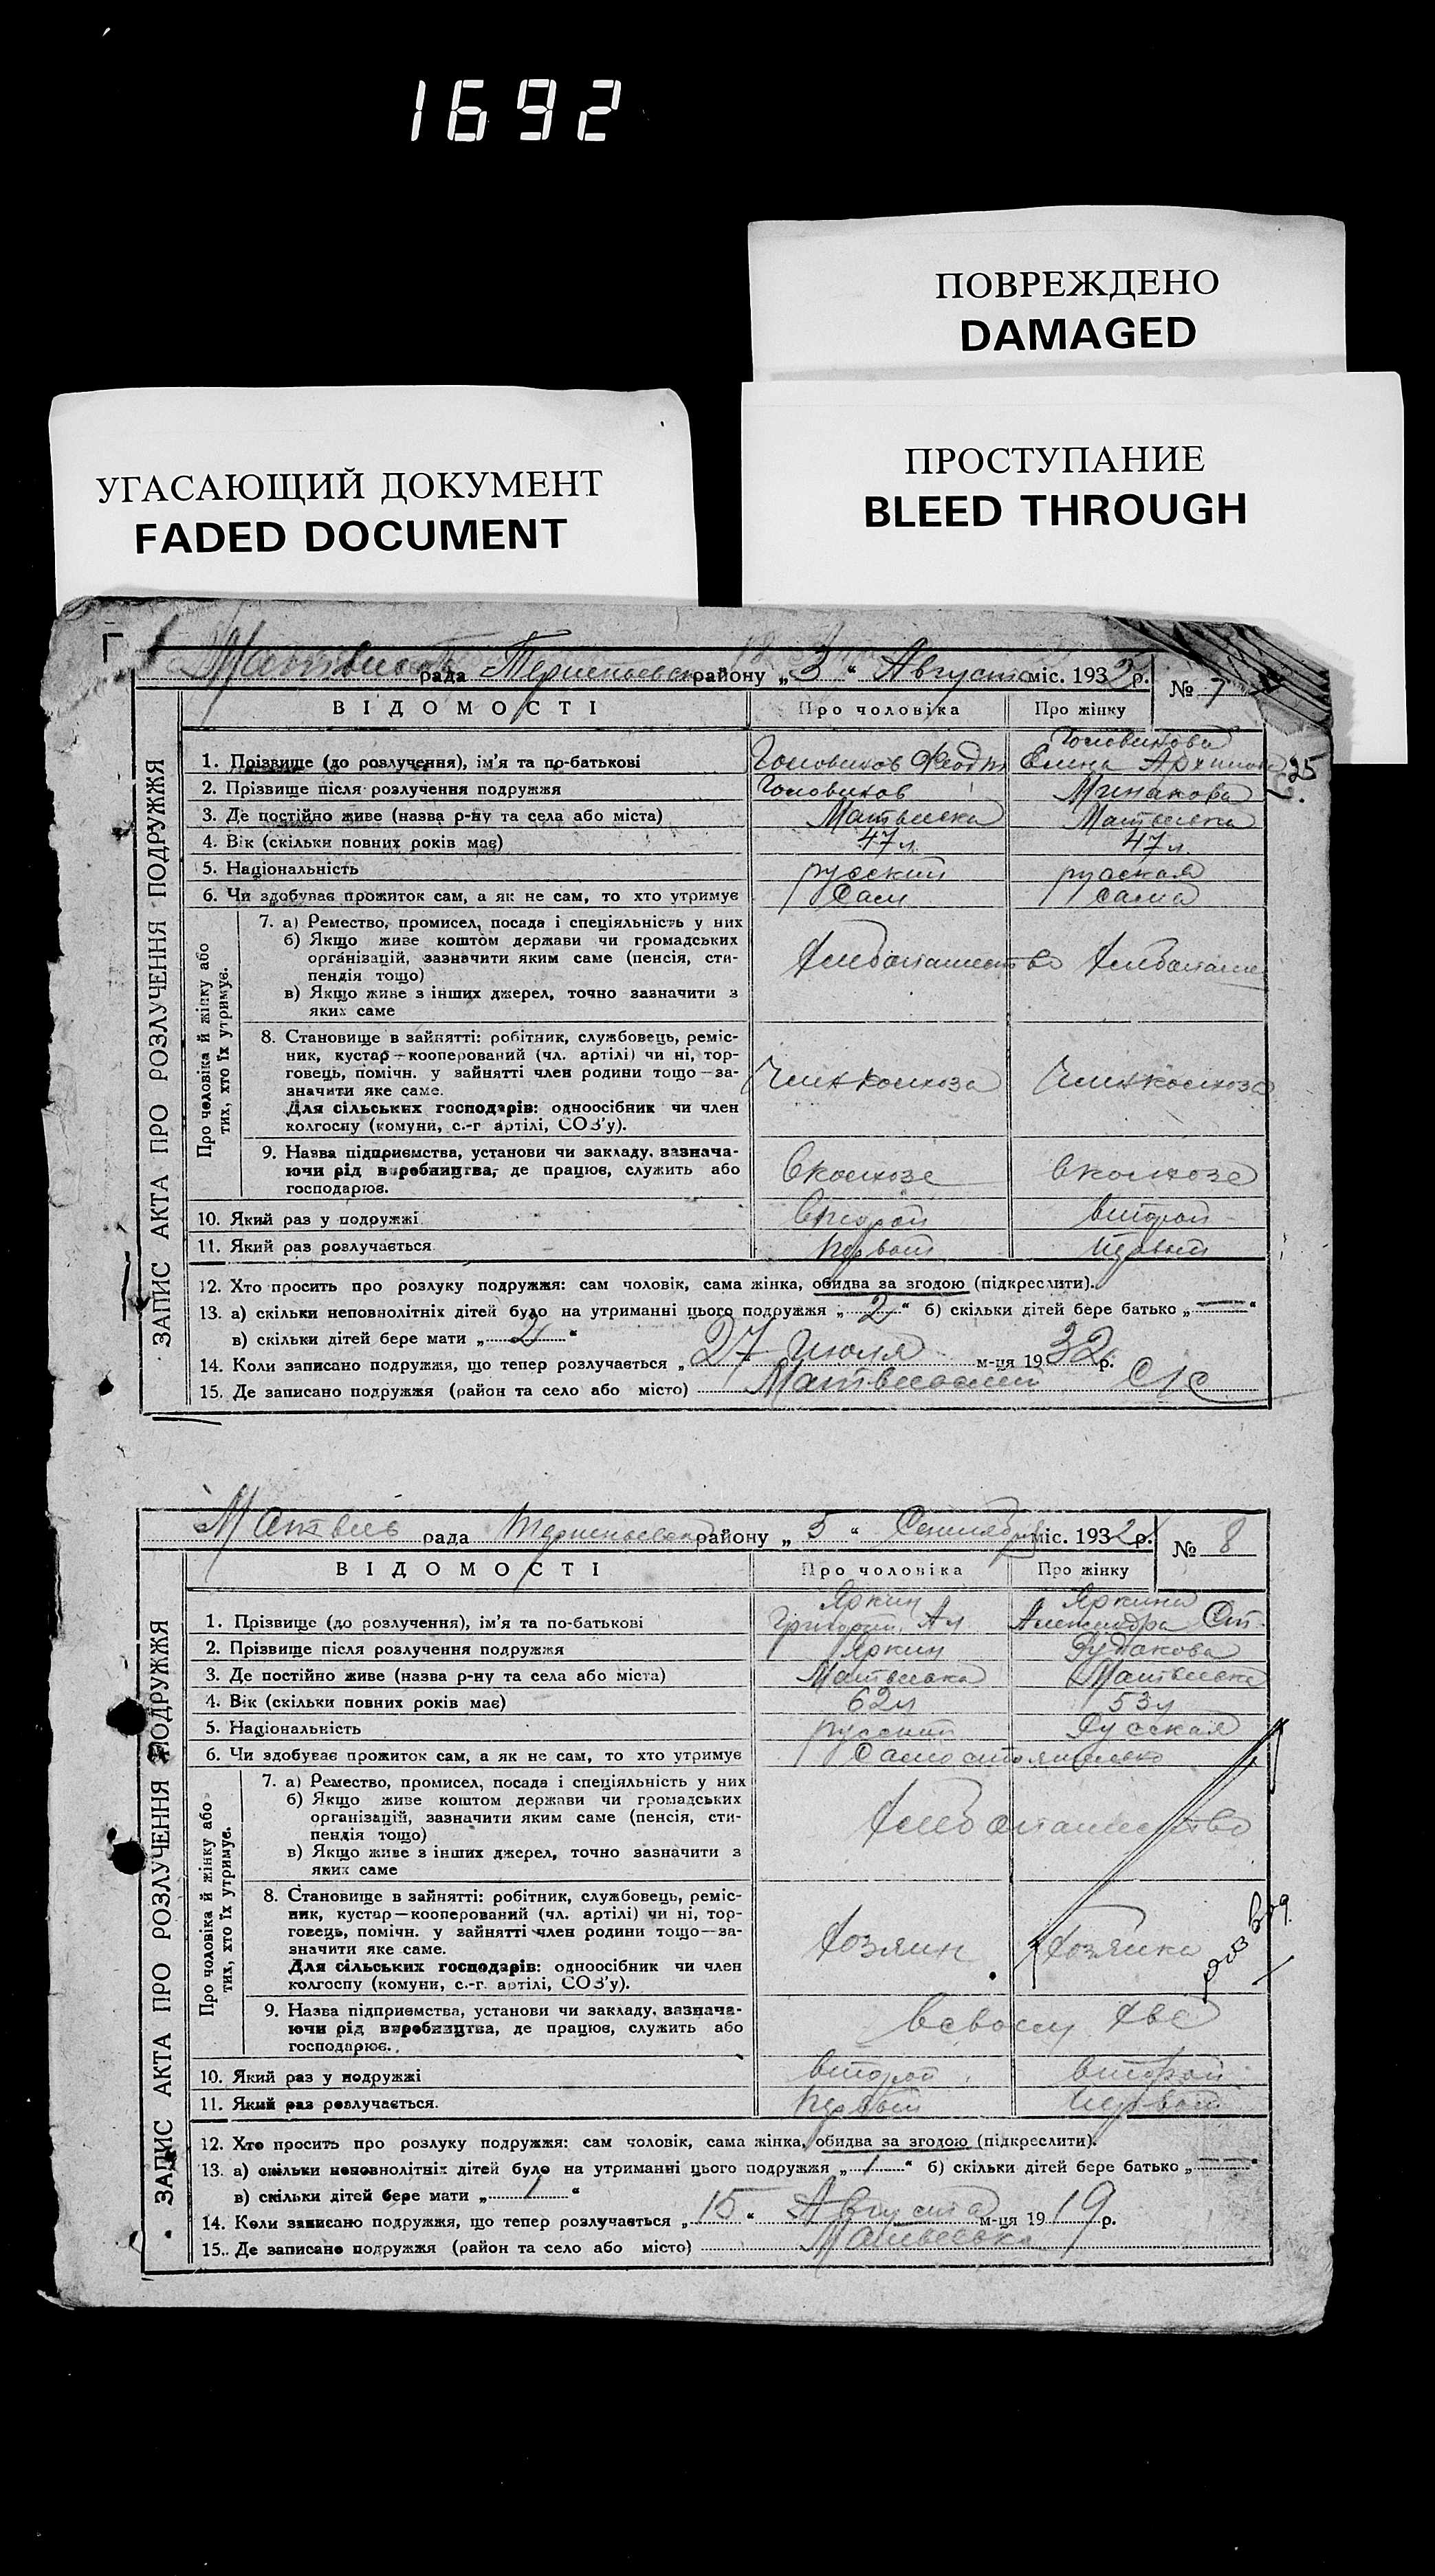 1692
ПОВРЕЖДЕНО
DAMAGED
УГАСАЮЩИЙ ДОКУМЕНТ
FADED DOCUMENT
ПРОСТУПАНИЕ
BLEED THROUGH
рада району „ 3 “ Августа міс. 1932 р. № 7
ЗАПИС АКТА ПРО РОЗЛУЧЕННЯ ПОДРУЖЖЯ
ВІДОМОСТІ Про чоловіка Про жінку
Головинова
1. Прізвище (до розлучення), ім'я та по-батькові Головинов Елена 25
2. Прізвище після розлучення подружжя Головинов Минакова
3. Де постійно живе (назва р-ну та села або міста) Матвеевка Матвеевка
4. Вік (скільки повних років має) 47 л. 47 л.
5. Національність русский русская
6. Чи здобуває прожиток сам, а як не сам, то хто утримує Сам Сама
Про чоловіка й жінку або тих, хто їх утримує.
7. а) Ремество, промисел, посада і спеціяльність у них
б) Якщо живе коштом держави чи громадських
організацій, зазначити яким саме (пенсія, сти- Хлебопашество Хлебопаше
пендія тощо)
в) Якщо живе з інших джерел, точно зазначити з
яких саме
8. Становище в зайнятті: робітник, службовець, реміс-
ник, кустар—кооперований (чл. артілі) чи ні, тор-
говець, помічн. у зайнятті член родини тощо—за- Член колхоза Член колхоза
значити яке саме.
Для сільських господарів: одноосібник чи член
колгоспу (комуни, с.-г артілі, СОЗ'у).
9. Назва підприємства, установи чи закладу, зазнача-
ючи рід виробництва, де працює, служить або В колхозе в колхозе
господарює.
10. Який раз у подружжі второй второй
11. Який раз розлучається первый первый
12. Хто просить про розлуку подружжя: сам чоловік, сама жінка, обидва за згодою (підкреслити).
13. а) скільки неповнолітніх дітей було на утриманні цього подружжя „ 2 “ б) скільки дітей бере батько „ — “
в) скільки дітей бере мати „ 2 “
14. Коли записано подружжя, що тепер розлучається „ 27 июля м-ця 1932 р.
15. Де записано подружжя (район та село або місто) С/С
рада району „ 5 “ Сентября міс. 1932 р. № 8
ЗАПИС АКТА ПРО РОЗЛУЧЕННЯ ПОДРУЖЖЯ
ВІДОМОСТІ Про чоловіка Про жінку
Яркин Яркина
1. Прізвище (до розлучення), ім'я та по-батькові Григорий Ал. Александра Ст.
2. Прізвище після розлучення подружжя Яркин
3. Де постійно живе (назва р-ну та села або міста) Матвеевка Матвеевка
4. Вік (скільки повних років має) 62 л 53 л
5. Національність русский Русская
6. Чи здобуває прожиток сам, а як не сам, то хто утримує Самостоятельно
Про чоловіка й жінку або тих, хто їх утримує.
7. а) Ремество, промисел, посада і спеціяльність у них
б) Якщо живе коштом держави чи громадських
організацій, зазначити яким саме (пенсія, сти- Хлебопашество
пендія тощо)
в) Якщо живе з інших джерел, точно зазначити з
яких саме
8. Становище в зайнятті: робітник, службовець, реміс-
ник, кустар—кооперований (чл. артілі) чи ні, тор-
говець, помічн. у зайнятті член родини тощо—за- Хозяин Хозяйка
значити яке саме.
Для сільських господарів: одноосібник чи член
колгоспу (комуни, с.-г. артілі, СОЗ'у).
9. Назва підприємства, установи чи закладу, зазнача-
ючи рід виробництва, де працює, служить або в своем хве
господарює.
10. Який раз у подружжі второй второй
11. Який раз розлучається. первый первый
12. Хто просить про розлуку подружжя: сам чоловік, сама жінка, обидва за згодою (підкреслити).
13. а) скільки неповнолітніх дітей було на утриманні цього подружжя „ 1 “ б) скільки дітей бере батько „ — “
в) скільки дітей бере мати „ 1 “
14. Коли записано подружжя, що тепер розлучається „ 15 “ Августа м-ця 1919 р.
15. Де записано подружжя (район та село або місто) Матвеевка